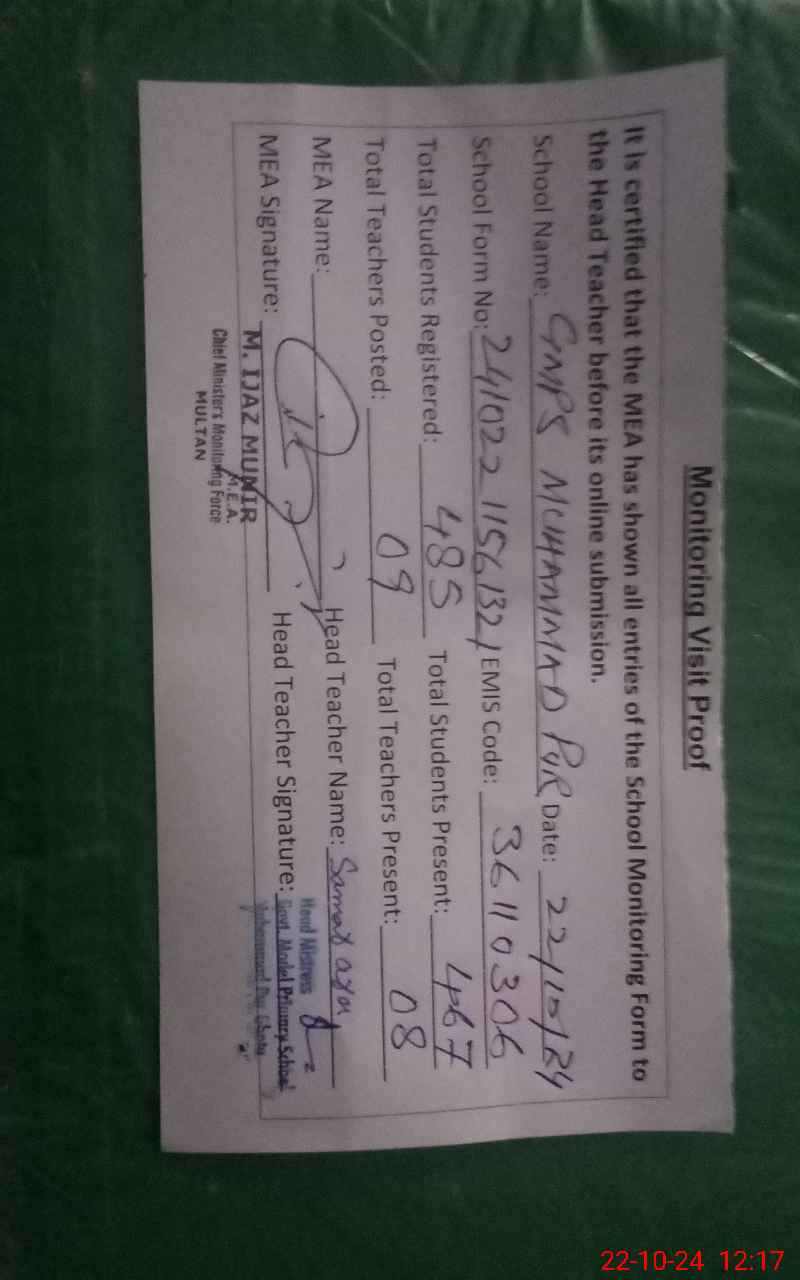 Monitoring Visit Proof
It is certified that the MEA has shown all entries of the School Monitoring Form to
the Head Teacher before its online submission.
School Name: GMPS MUHAMMAD PUR Date: 22/10/24
School Form No: 241022 1156132 / EMIS Code: 36110306
Total Students Registered: 485 Total Students Present: 467
Total Teachers Posted: 09 Total Teachers Present: 08
MEA Name: Head Teacher Name:
MEA Signature: Head Teacher Signature:
M. IJAZ MUNIR
M.E.A.
Chief Ministers Monitoring Force
MULTAN
Head Mistress
Govt. Model Primary School
22-10-24 12:17